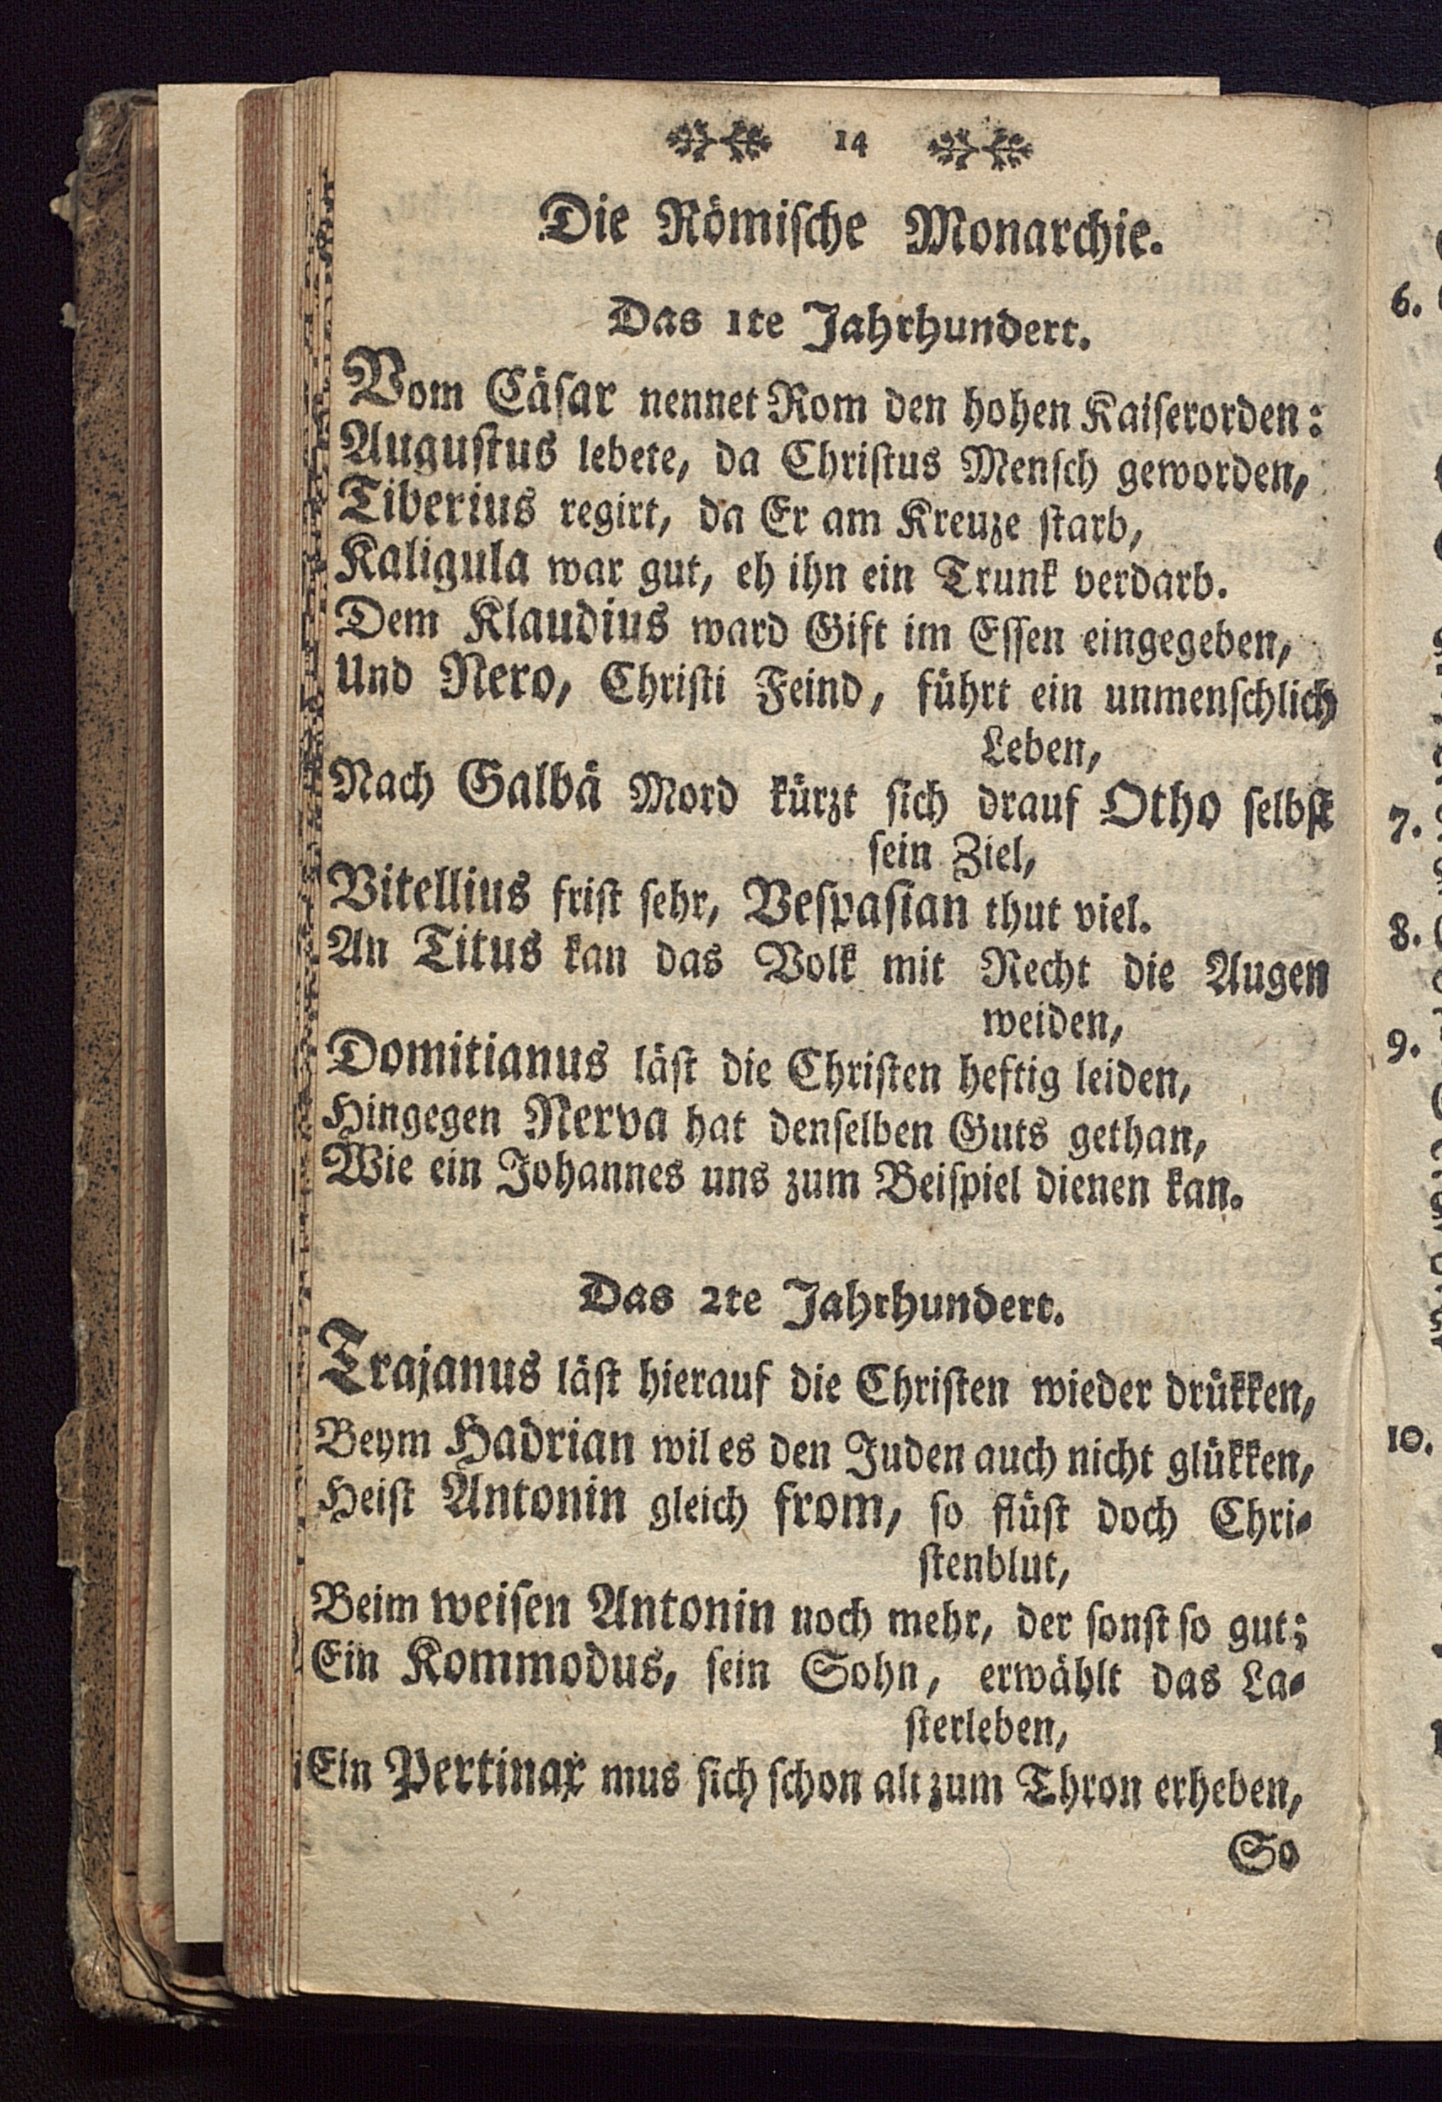 14
Die Römiſche Monarchie.
Das 1te Jahrhundert.
Vom Cäſar nennet Rom den hohen Kaiſerorden:
Auguſtus lebete, da Chriſtus Menſch geworden,
Tiberius regirt, da Er am Kreuze ſtarb,
Kaligula war gut, eh ihn ein Trunk verdarb.
Dem Klaudius ward Gift im Eſſen eingegeben,
Und Nero, Chriſti Feind, führt ein unmenſchlich
Leben,
Nach Galbä Mord kürzt ſich drauf Otho ſelbſt
ſein Ziel,
Vitellius friſt ſehr, Veſpaſian thut viel.
An Titus kan das Volk mit Recht die Augen
weiden,
Domitianus läſt die Chriſten heftig leiden,
Hingegen Nerva hat denſelben Guts gethan,
Wie ein Johannes uns zum Beiſpiel dienen kan.
Das 2te Jahrhundert.
Trajanus läſt hierauf die Chriſten wieder drükken,
Beym Hadrian wil es den Juden auch nicht glükken,
Heiſt Antonin gleich from, ſo flüſt doch Chri-
ſtenblut,
Beim weiſen Antonin noch mehr, der ſonſt ſo gut;
Ein Kommodus, ſein Sohn, erwählt das La-
ſterleben,
Ein Pertinax mus ſich ſchon alt zum Thron erheben,
So
6.
7.
8.
9.
10.